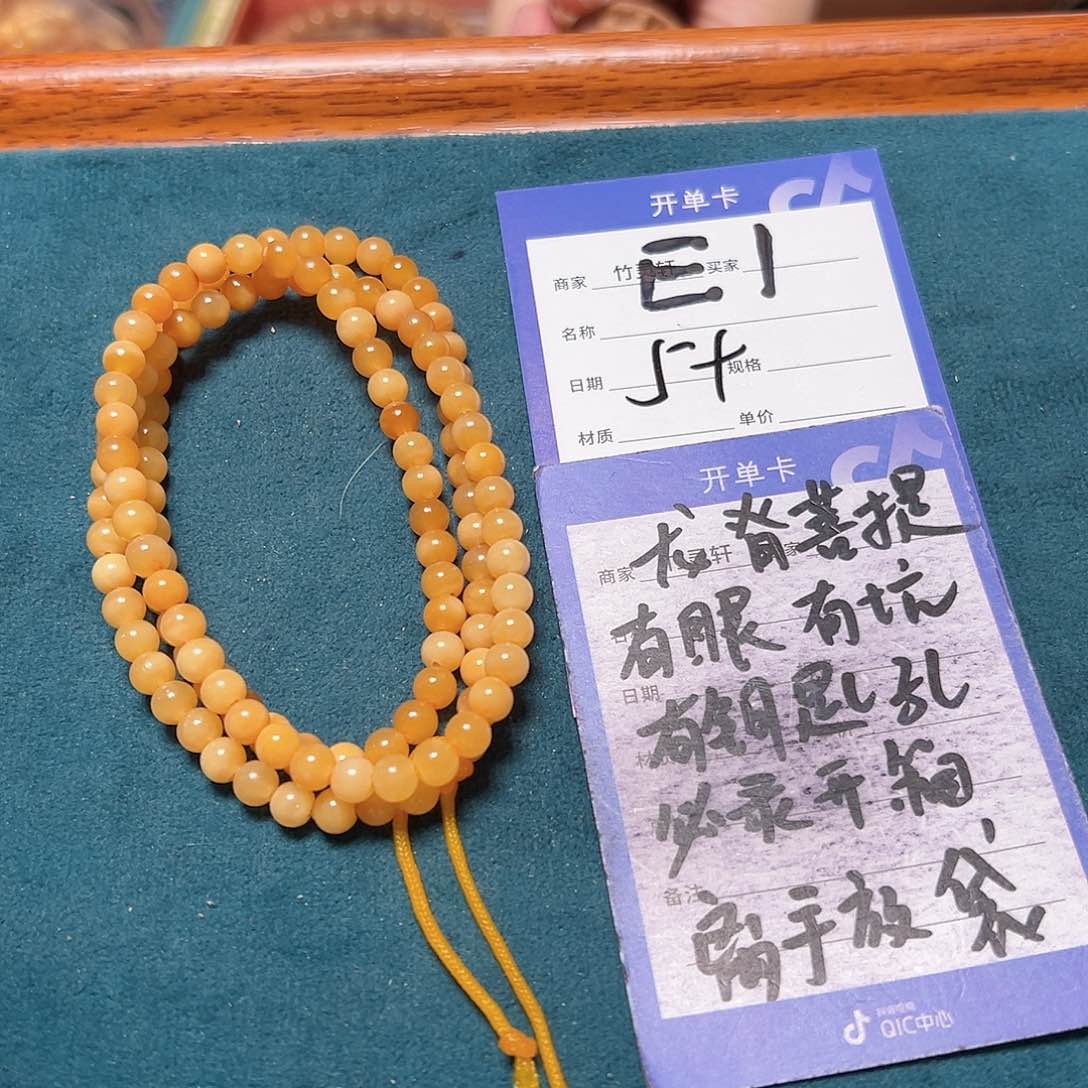 开单卡
E1
商家 竹灵轩 买家
名称
5十
日期 规格
材质 单价
开单卡
龙脊菩提
商家 灵轩 家
有眼 有坑
日期
有钥匙乱
必录开箱
备注
离手放袋
QIC中心